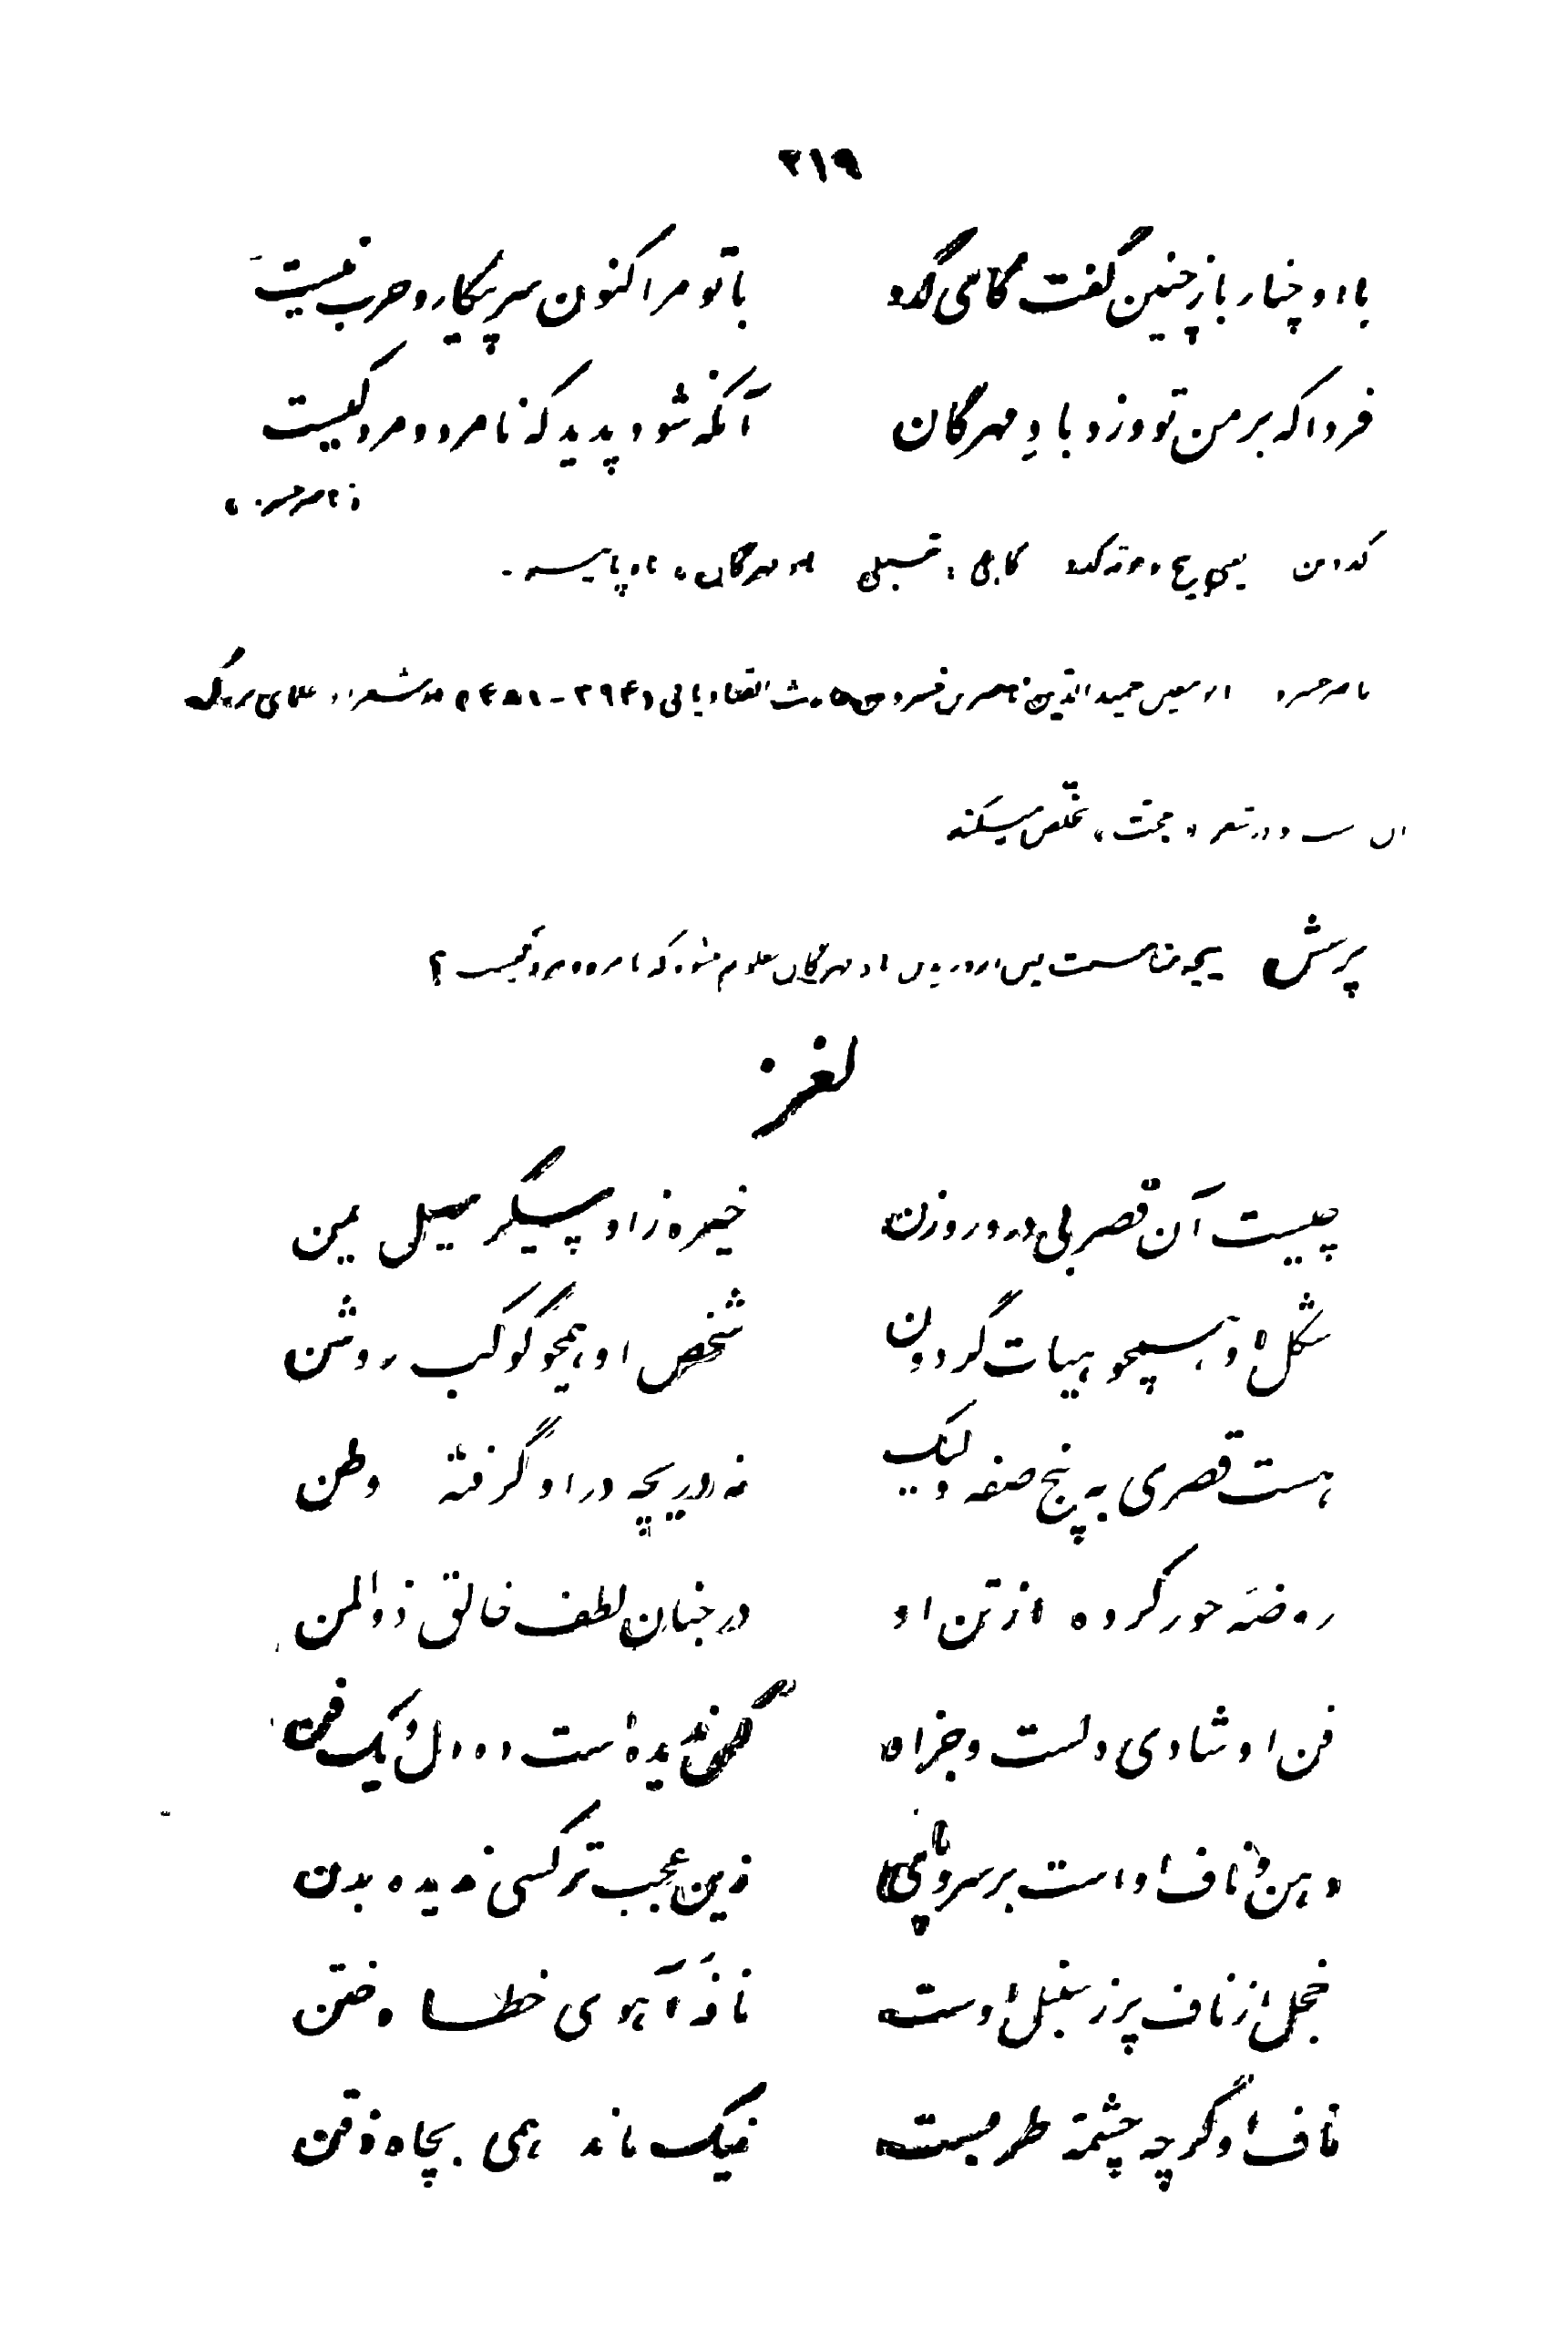 ۲۱۹
با او چنار باز چنین گفت کای کدو با تو مرا کنون سر پیکار و حرب نیست
فردا که بر من تو وزد بادِ مهرگان آنگه شود پدید که نامرد و مرد کیست
«ناصرخسرو»
کدوبن یعنی بوته کدو کاهلی: تنبلی باد مهرگان: باد پاییز.
ناصرخسرو حمیدالدین ناصر بن خسرو بن حارث القبادیانی (۳۹۴-۴۸۱) از شعرا و علمای بزرگ
ایران است و در شعر «حجت» تخلص میکند
پرسش بچه مناسبت پس از وزیدن باد مهرگان معلوم میشود که نامرد و مرد کیست؟
لغز
چیست آن قصر بی در و روزن خیره زاو پیکر سهیل یمن
شکل او همچو هیات گردون شخص او همچو کوکب روشن
هست قصری به پنج صفه ولیک نه دریچه در او گرفته وطن
روضهٔ حور کرده از تن او در جنان لطف خالق ذوالمن
فن او شادی دلست و جزاو کس ندیده است ده دل و یک فن
دهن و ناف او است بر سر و پای زین عجب‌تر کسی ندیده بدن
خجل از ناف پر ز سنبل اوست نافهٔ آهوی خطا و ختن
ناف او گرچه چشمهٔ طربست نیک ماند همی بچاه ذقن